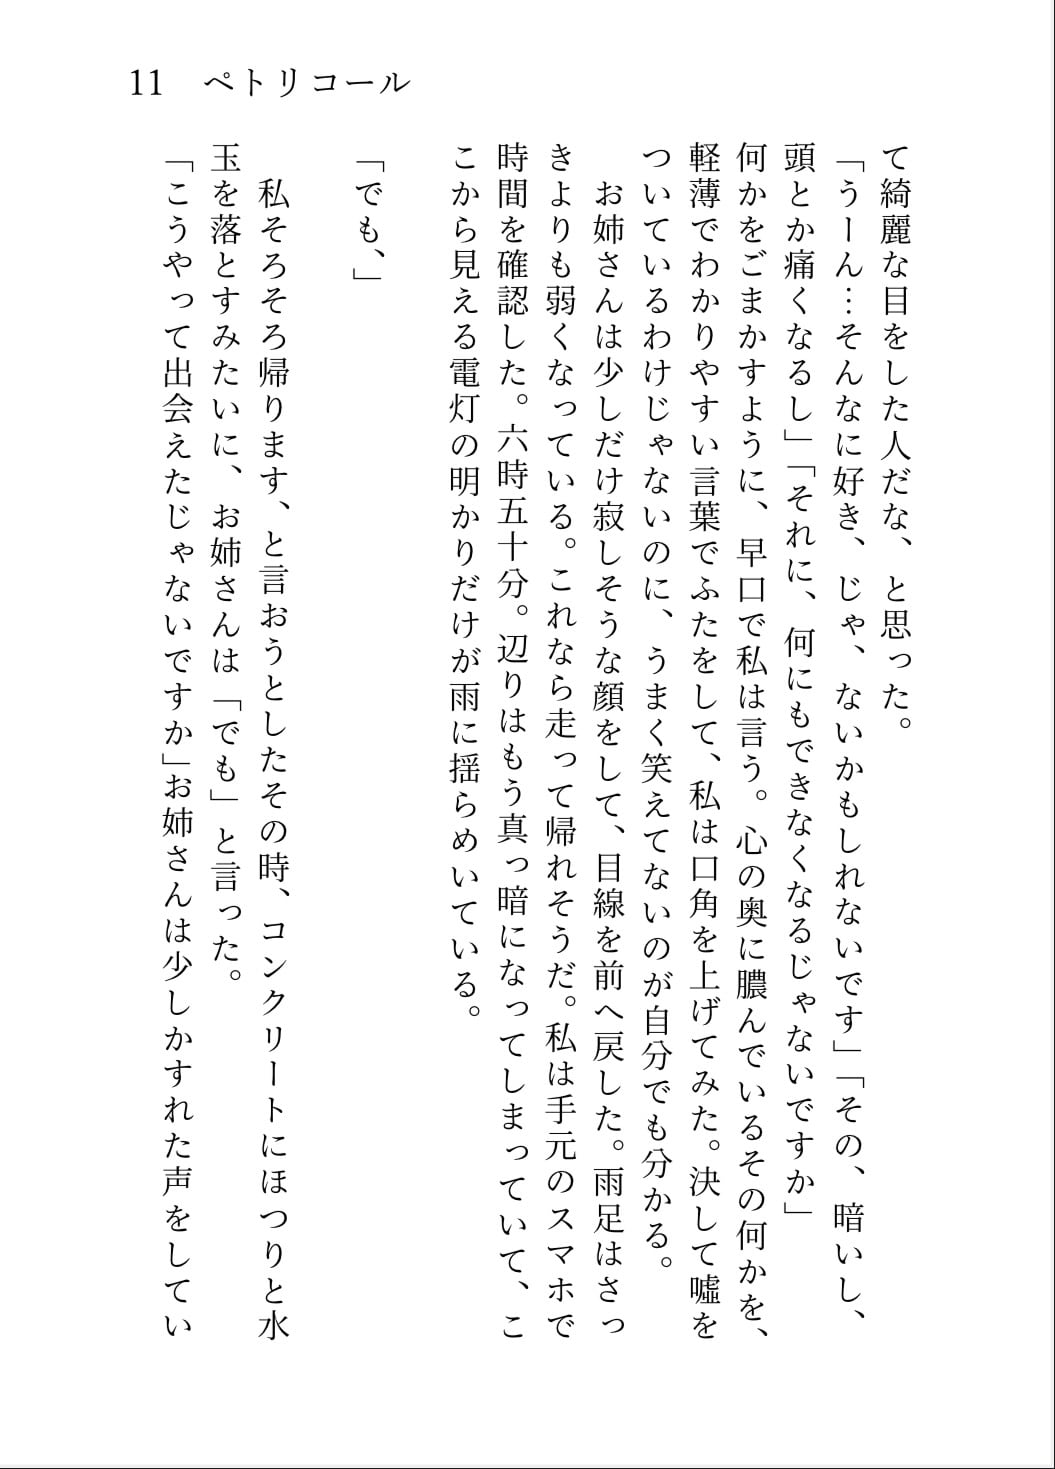 11 ペトリコール
て綺麗な目をした人だな、と思った。
「うーん…そんなに好き、じゃ、ないかもしれないです」「その、暗いし、
頭とか痛くなるし」「それに、何にもできなくなるじゃないですか」
何かをごまかすように、早口で私は言う。心の奥に膿んでいるその何かを、
軽薄でわかりやすい言葉でふたをして、私は口角を上げてみた。決して嘘を
ついているわけじゃないのに、うまく笑えてないのが自分でも分かる。
お姉さんは少しだけ寂しそうな顔をして、目線を前へ戻した。雨足はさっ
きよりも弱くなっている。これなら走って帰れそうだ。私は手元のスマホで
時間を確認した。六時五十分。辺りはもう真っ暗になってしまっていて、こ
こから見える電灯の明かりだけが雨に揺らめいている。
「でも、」
私そろそろ帰ります、と言おうとしたその時、コンクリートにほつりと水
玉を落とすみたいに、お姉さんは「でも」と言った。
「こうやって出会えたじゃないですか」お姉さんは少しかすれた声をしてい